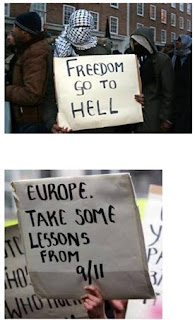 FREEDOM
GO TO
HELL
EUROPE.
TAKE SOME
LESSONS
FROM
9/11